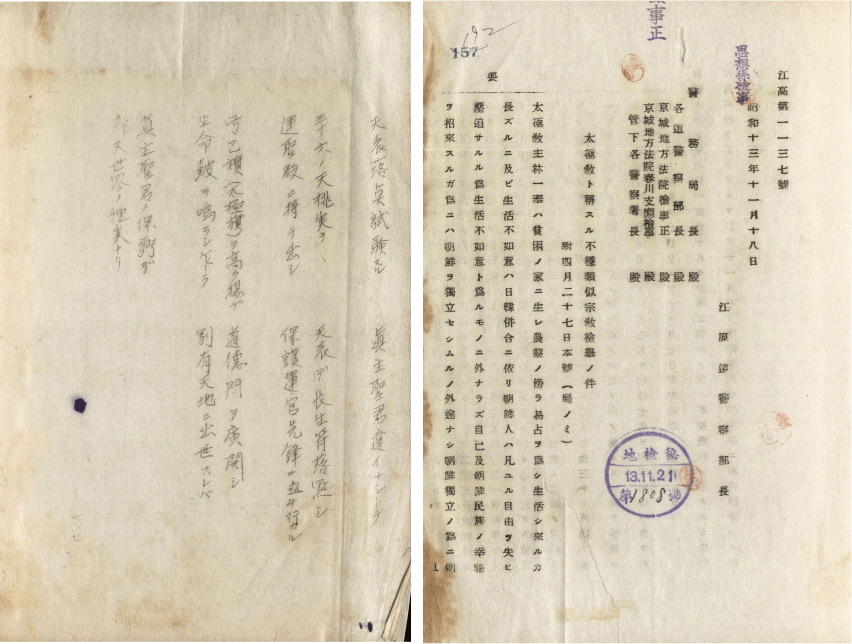 江高第一一三七號
昭和十三年十一月十八日
思想係檢事
江原道警察部長
事正
警務局長殿
各道警察部長殿
京城地方法院檢事正殿
京城地方法院春川支廳檢事殿
管下各警察署長殿
太極教ト稱スル不穩類似宗教檢擧ノ件
四月二十七日本號(局ノミ)
地檢秘
13.11.21
第1808號
要
157
太極教主林一奉ハ貧困ノ家ニ生レ農業ノ傍ラ易占ヲ爲シ生活シ來ルカ
長ズルニ及ビ生活不如意ハ日韓併合ニ依リ朝鮮人ハ凡ユル自由ヲ失ヒ
壓迫サルル爲生活不如意ト爲ルモノニ外ナラズ自己及朝鮮民族ノ幸福
ヲ招來スルガ爲ニハ朝鮮ヲ獨立セシムルノ外途ナシ朝鮮獨立ノ爲ニ朝
1
天表落点試験スル 眞主聖君達イナシテ
三十六ノ天桃実ヲ 天表デ長生符落點シ
運聖殿ニ持チ出シ 保護運宮先鋒ニ立チ行カル
弓乙旗太極旗ヲ高ク揚ゲ 道德門ヲ廣開シ
生命鼓ヲ鳴ラシ乍ラ 別有天地ニ出世スレバ
眞主聖君ノ保野デ
世界ノ種実ナリ